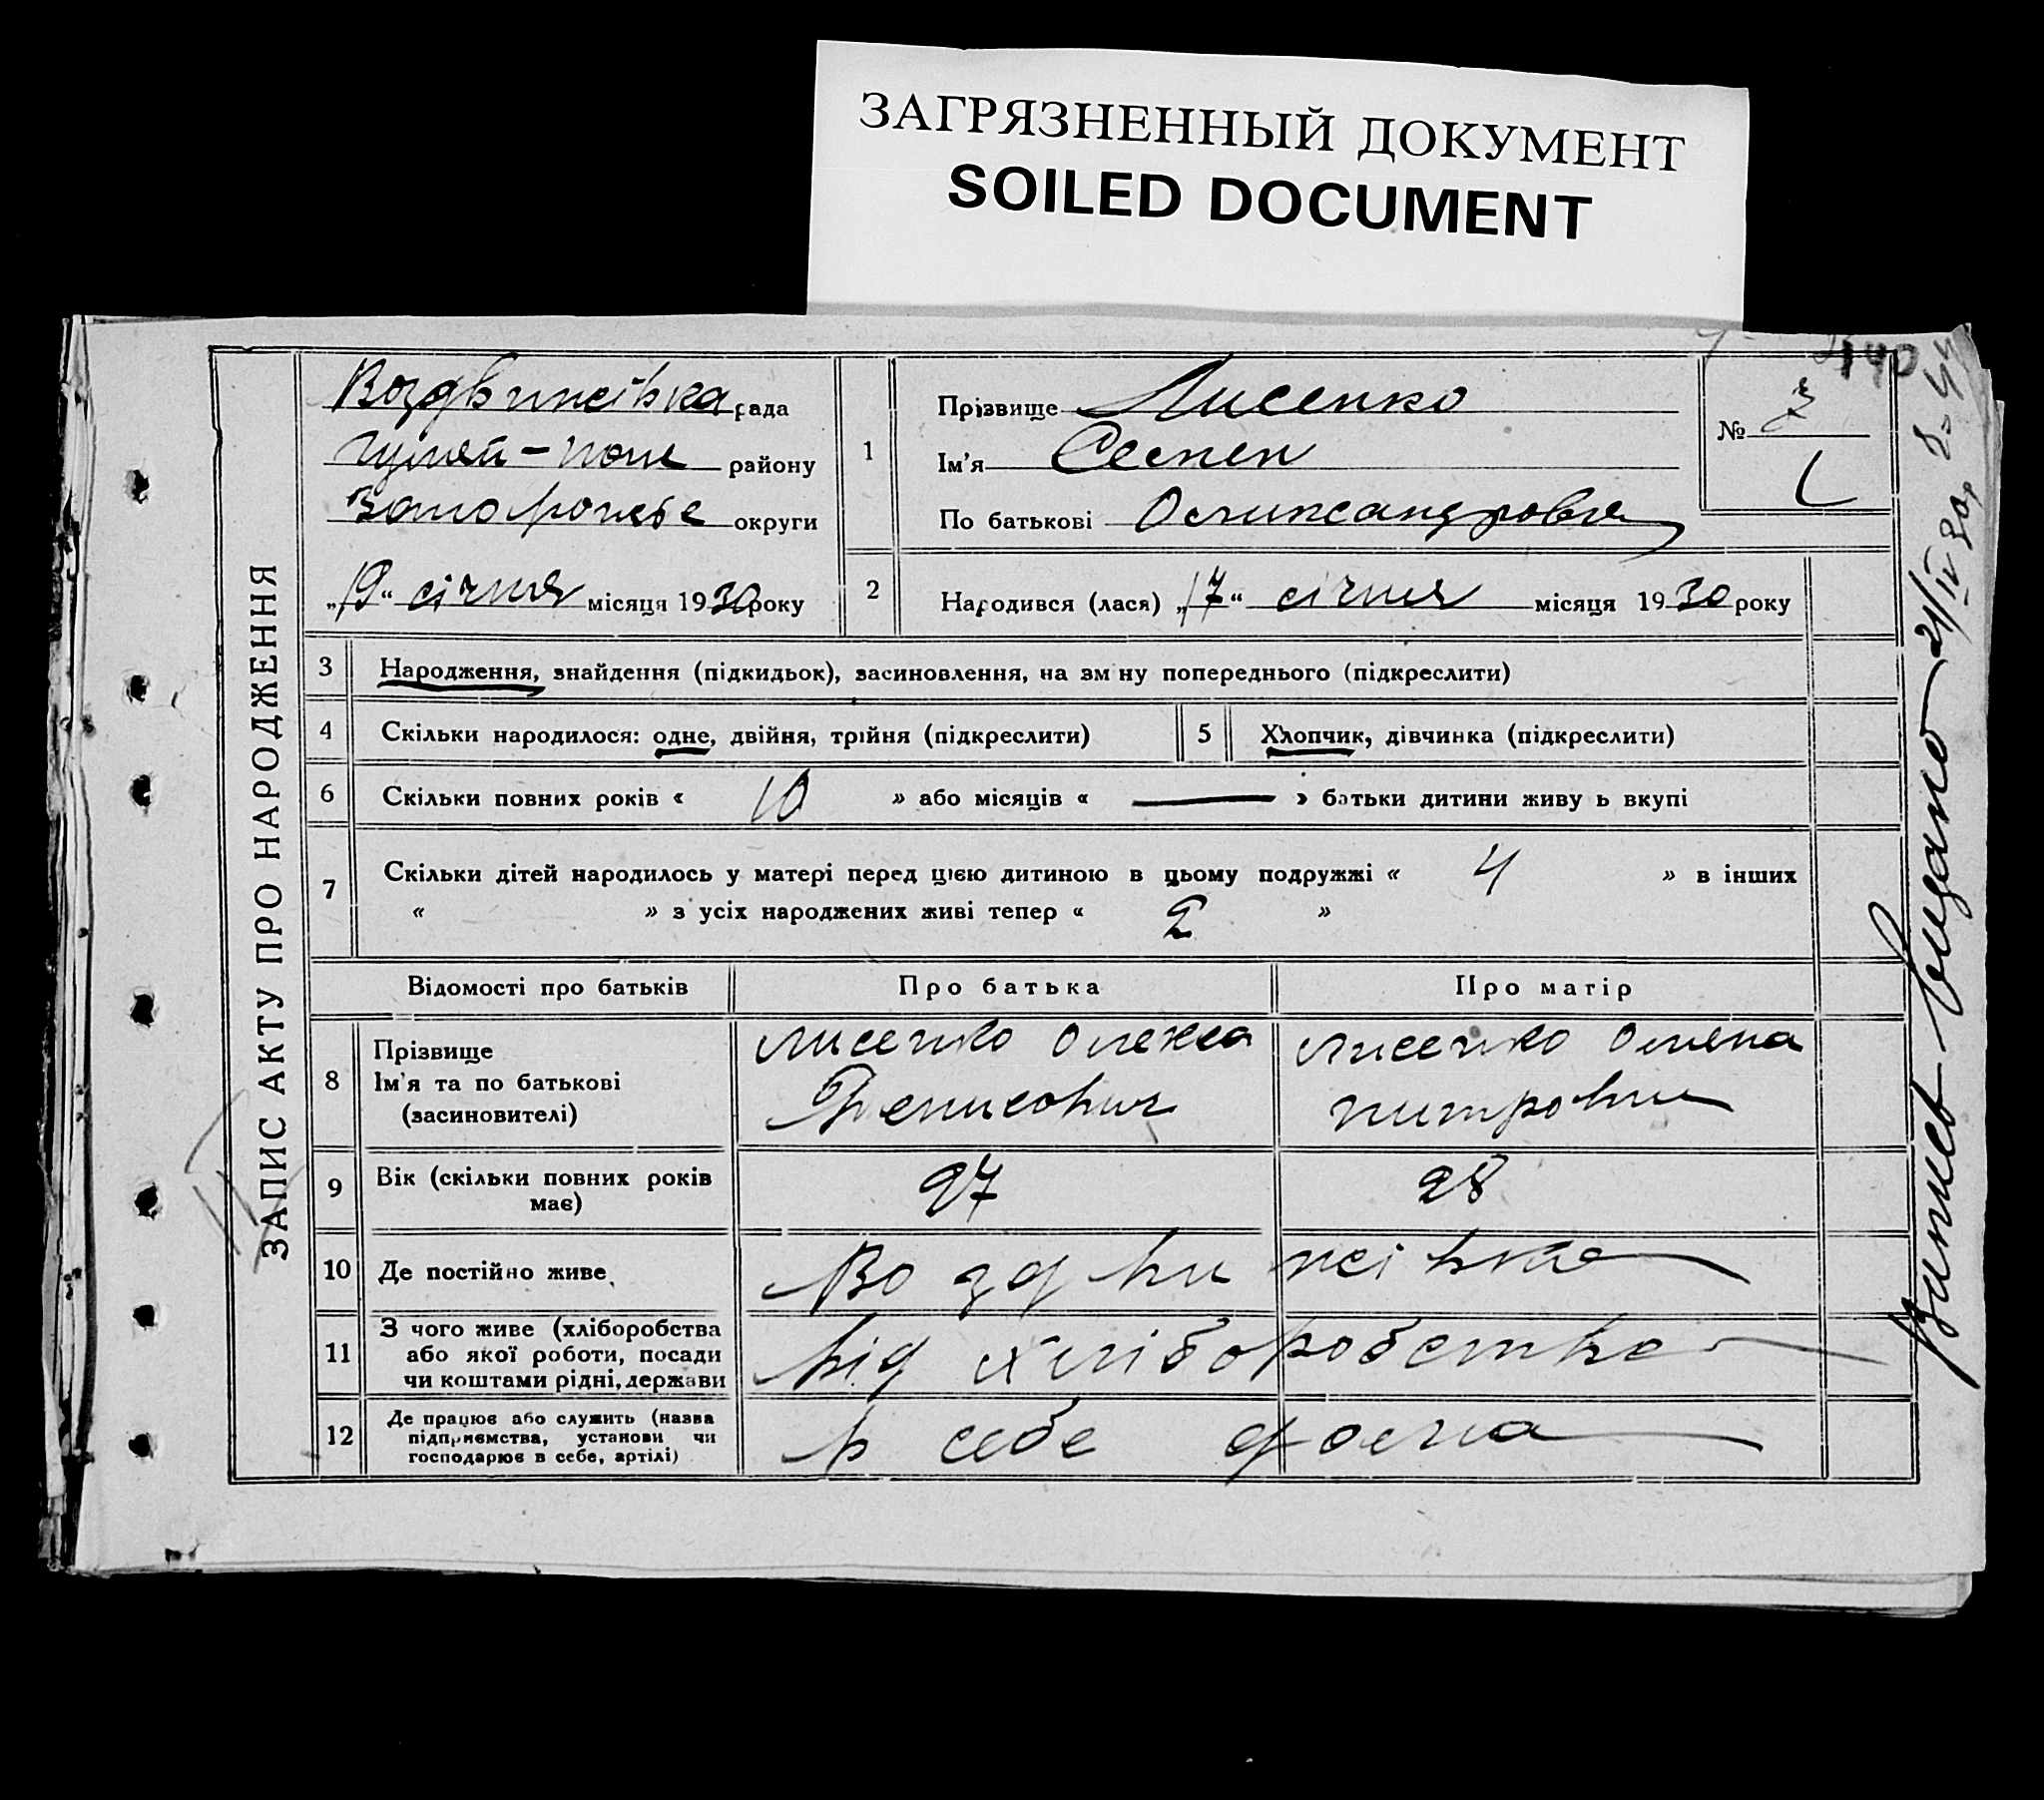 ЗАГРЯЗНЕННЫЙ ДОКУМЕНТ
SOILED DOCUMENT
140
ЗАПИС АКТУ ПРО НАРОДЖЕННЯ
Воздвижсівка рада
Гуляй-поле району
Запорожье округи
„19“ січня місяця 1930 року
1
Прізвище Лисенко
Ім'я Семен
По батькові
№ 7
2
Народився (лася) „17“ січня місяця 1930 року
3 Народження, знайдення (підкидьок), засиновлення, на зм ну попереднього (підкреслити)
4 Скільки народилося: одне, двійня, трійня (підкреслити)
5 Хлопчик, дівчинка (підкреслити)
6 Скільки повних років « 10 » або місяців « — » батьки дитини живу ь вкупі
7 Скільки дітей народилось у матері перед цією дитиною в цьому подружжі « 4 » в інших
« » з усіх народжених живі тепер « 2 »
Відомості про батьків
Про батька
Про матір
8
Прізвище
Ім'я та по батькові
(засиновителі)
Лисенко Олекса
Денисович
Лисенко Олена
питровна
9
Вік (скільки повних років
має)
27
28
10 Де постійно живе
Воздвижсівка
11
З чого живе (хліборобства
або якої роботи, посади
чи коштами рідні, держави
від хліборобства
12
Де працює або служить (назва
підприємства, установи чи
господарює в себе, артілі)
в себе дома
Витяг видано 21/IV 30р